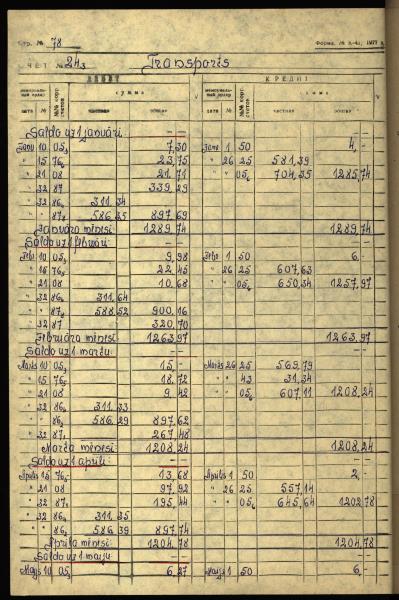 Стр. № 78
Форма № К-41, 1977 г.
СЧЕТ № 24₃ Transports
ДЕБЕТ КРЕДИТ
сумма сумма
дата № частная общая дата № частная общая
Saldo uz 1 janvāri — — — —
Janv 10 05₃ 7,30 Janv 1 50 4,-
" 15 76₅ 23,75 " 26 25 581,39
" 21 08 21,71 " " 05₆ 704,35 1285,74
" 32 87 339,29
" 32 86₂ 311,34
" " 87₂ 586,25 897,69
Janvāra mēnesī 1289,74 1289,74
Saldo uz 1 februāri — — — —
Febr 10 05₃ 9,98 Febr 1 50 6,-
" 16 76₅ 22,45 " 26 25 607,63
" 21 08 10,68 " " 05₆ 650,34 1257,97
" 32 86₂ 311,64
" " 87₂ 588,52 900,16
" 32 87 320,70
Februāra mēnesī 1263,97 1263,97
Saldo uz 1 martu — — — —
Marts 10 05₃ 15,- Marts 26 25 569,79
" 15 76₅ 18,72 " " 43 31,34
" 21 08 9,42 " " 05₆ 607,11 1208,24
" 32 86₂ 311,33
" " 86₂ 586,29 897,62
" 32 87₂ 267,48
Marta mēnesī 1208,24 1208,24
Saldo uz 1 aprīli — — — —
Aprīlis 15 76₅ 13,68 Aprīlis 1 50 2,-
" 21 08 97,92 " 26 25 557,14
" 32 87₂ 195,44 " " 05₆ 645,64 1202,78
" 32 86₂ 311,35
" " 86₂ 586,39 897,74
Aprīļa mēnesī 1204,78 1204,78
Saldo uz 1 maiju — — — —
Maijs 10 05₃ 6,27 Maijs 1 50 6,-